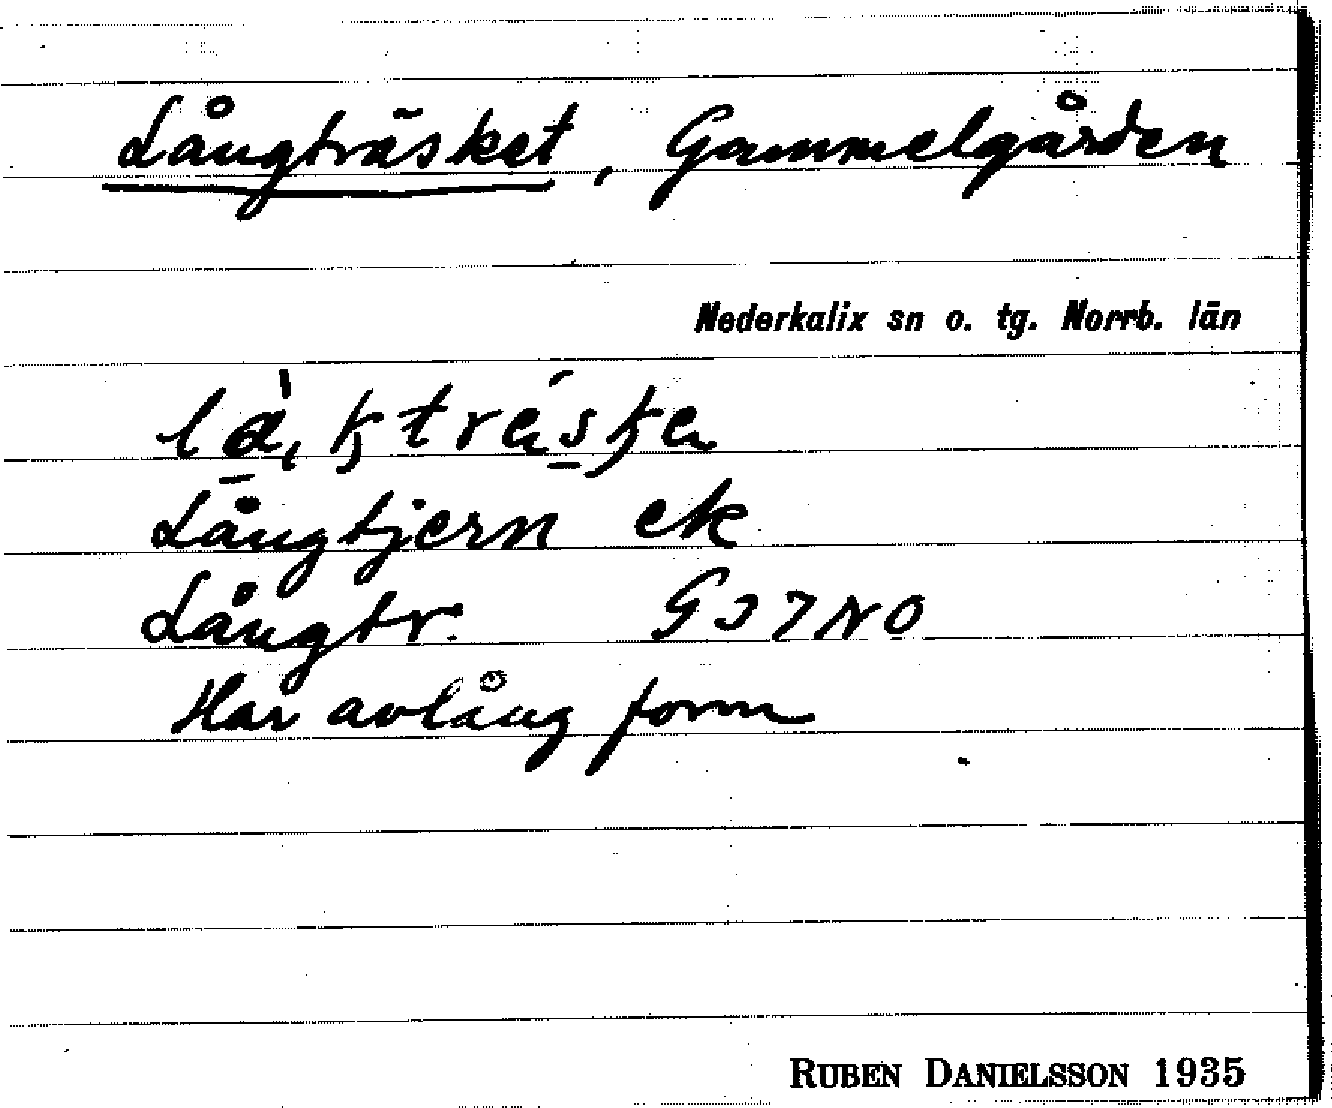 Långträsket, Gammelgården
Nederkalix sn o. tg. Norrb. län
Långtjern ek
Långtr. G37NO
Har avlång form
RUBEN DANIELSSON 1935